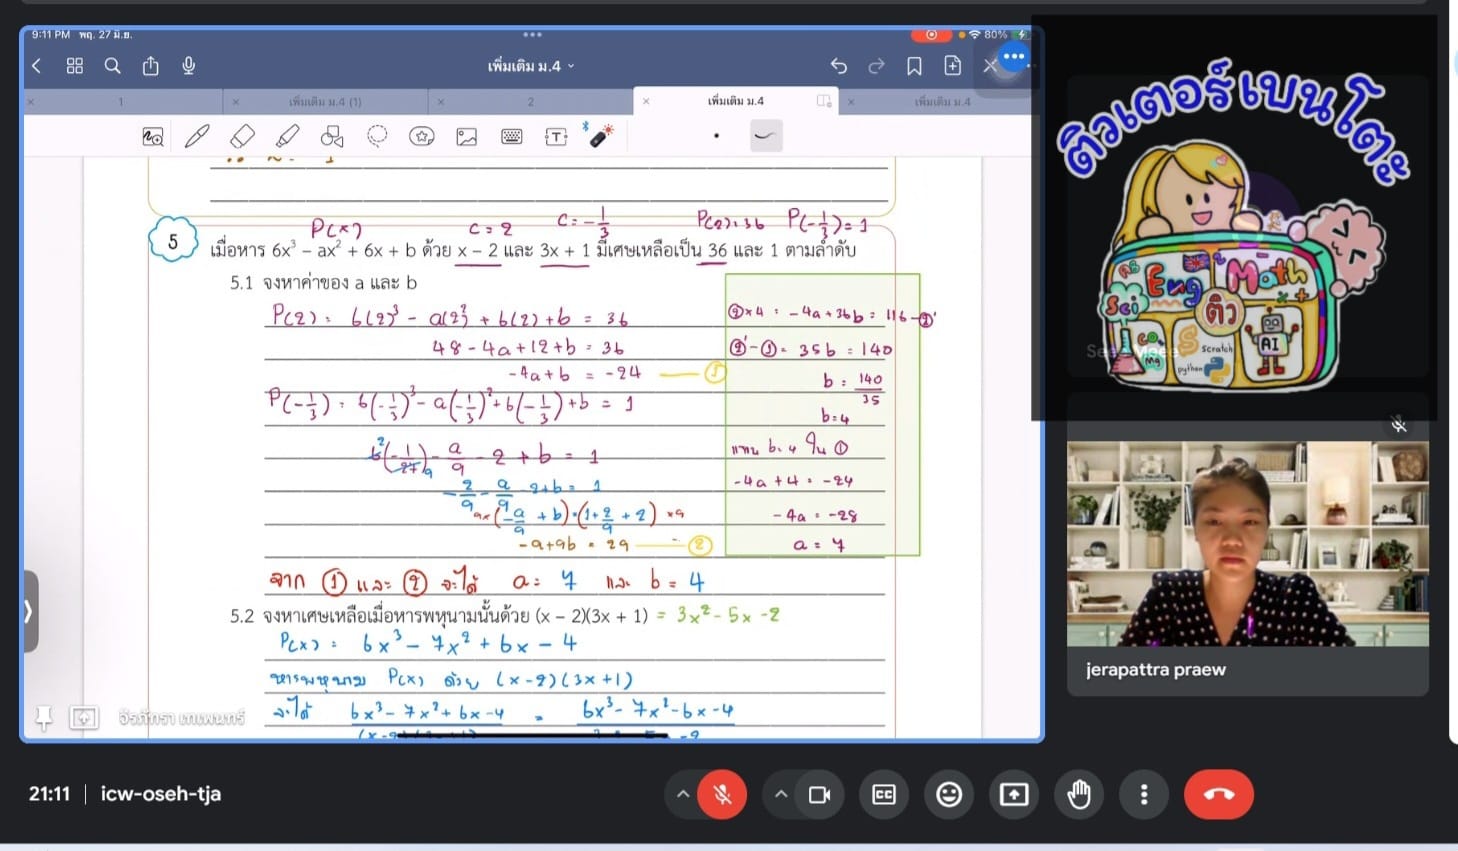 9:11 PM พฤ. 27 มิ.ย.
80%
เพิ่มเติม ม.4
1
เพิ่มเติม ม.4 (1)
2
เพิ่มเติม ม.4
เพิ่มเติม ม.4
P(x)
c = 2
c = -1/3
P(2) = 36
P(-1/3) = 1
5
เมื่อหาร 6x³ − ax² + 6x + b ด้วย x − 2 และ 3x + 1 มีเศษเหลือเป็น 36 และ 1 ตามลำดับ
5.1 จงหาค่าของ a และ b
P(2) = 6(2)³ - a(2)² + 6(2) + b = 36
48 - 4a + 12 + b = 36
-4a + b = -24 — ①
P(-1/3) = 6(-1/3)³ - a(-1/3)² + 6(-1/3) + b = 1
6(-1/27) - a/9 - 2 + b = 1
-2/9 - a/9 - 2 + b = 1
9×(-a/9 + b) = (1 + 2/9 + 2) ×9
-a + 9b = 29 — ②
②×4 = -4a + 36b = 116 - ②'
②' - ① = 35b = 140
b = 140/35
b = 4
แทน b = 4 ใน ①
-4a + 4 = -24
-4a = -28
a = 7
จาก ① และ ② จะได้ a = 7 และ b = 4
5.2 จงหาเศษเหลือเมื่อหารพหุนามนั้นด้วย (x − 2)(3x + 1) = 3x² - 5x - 2
P(x) = 6x³ - 7x² + 6x - 4
หารพหุนาม P(x) ด้วย (x-2)(3x+1)
จะได้ 6x³ - 7x² + 6x - 4 = 6x³ - 7x² - 6x - 4
จิรภัทรา เทเพนทร์
ติวเตอร์เบนโตะ
Eng
Math
Sci
ติว
AI
Scratch
python
Mg
jerapattra praew
21:11 | icw-oseh-tja
CC